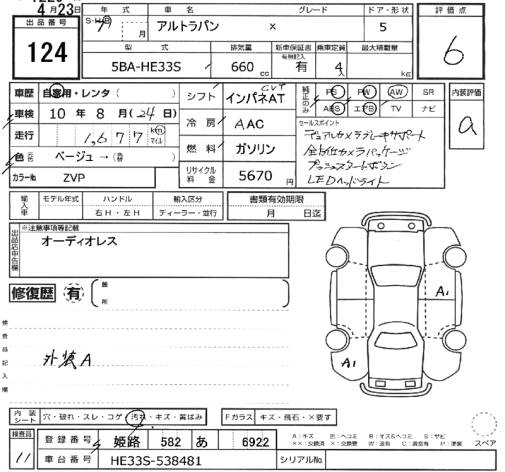 4月23日
出品番号
124
年式 車名 グレード ドア・形状
S・H・R 月 アルトラパン X 5
型式 排気量 新車保証書 乗車定員 最大積載量
有無記入
5BA-HE33S 660 cc 有 4人 kg
評価点
6
内装評価
a
車歴 自家用・レンタ( )
車検 10年8月(24日)
走行 1,677 km マイル
色 ベージュ→( )
カラーNo ZVP
シフト インパネAT CVT
冷房 AAC
燃料 ガソリン
リサイクル料金 5670円
純正のみ PS PW AW SR
ABS エアB TV ナビ
セールスポイント
デュアルカメラブレーキサポート
全方位カメラパッケージ
プッシュスタートボタン
LEDヘッドライト
輸入車 モデル年式 ハンドル 輸入区分
右H・左H ディーラー・並行
書類有効期限
月 日迄
出品店申告欄
※注意事項等記載
オーディオレス
修復歴 有 箇所
検査員記入欄
外装A
A1
A1
内装シート 穴・破れ・スレ・コゲ 汚れ・キズ・黄ばみ
Fガラス キズ・飛石・×要す
検査員
11
登録番号 姫路 582 あ 6922
車台番号 HE33S-538481 シリアルNo.
A:キズ E:ヘコミ B:キズ&ヘコミ S:サビ
××:交換済 ×:交換要 W:波 C:腐食 P:塗装
スペア